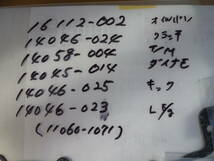 16112-002 オイルパン
14046-024 クラッチ
14058-004 T/M
14045-014 ダイナモ
14046-025 キック
14046-023 L
(11060-1071)